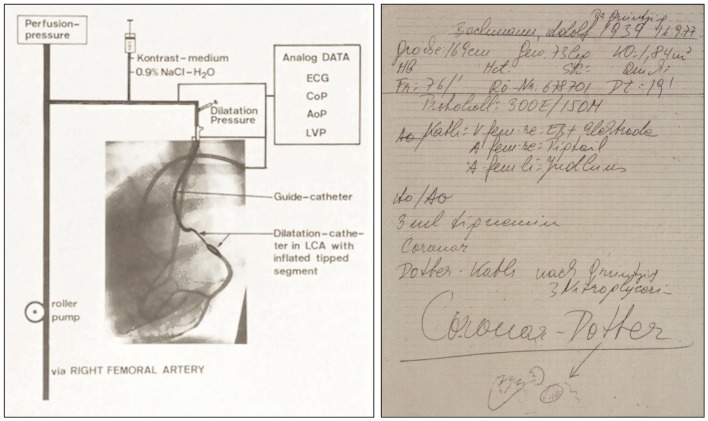 Perfusion-
pressure
Kontrast-medium
0.9% NaCl-H₂O
Dilatation
Pressure
Analog DATA
ECG
CoP
AoP
LVP
Guide-catheter
Dilatation-cathe-
ter in LCA with
inflated tipped
segment
roller
pump
via RIGHT FEMORAL ARTERY
Bachmann, Adolf 1939 16.9.77
Größe: 169cm Gew. 73kg KO: 1,84 m²
HB Hct:
Fr: 76/' Rö-Nr. 678701
Protokoll: 300E/150M
Kath: V fem re: EB + Elektrode
A fem re: Pigtail
A fem li: Judkins
Ao/Ao
3 ml
Coronar
Dotter-Kath nach Grüntzig
Coronar-Dotter